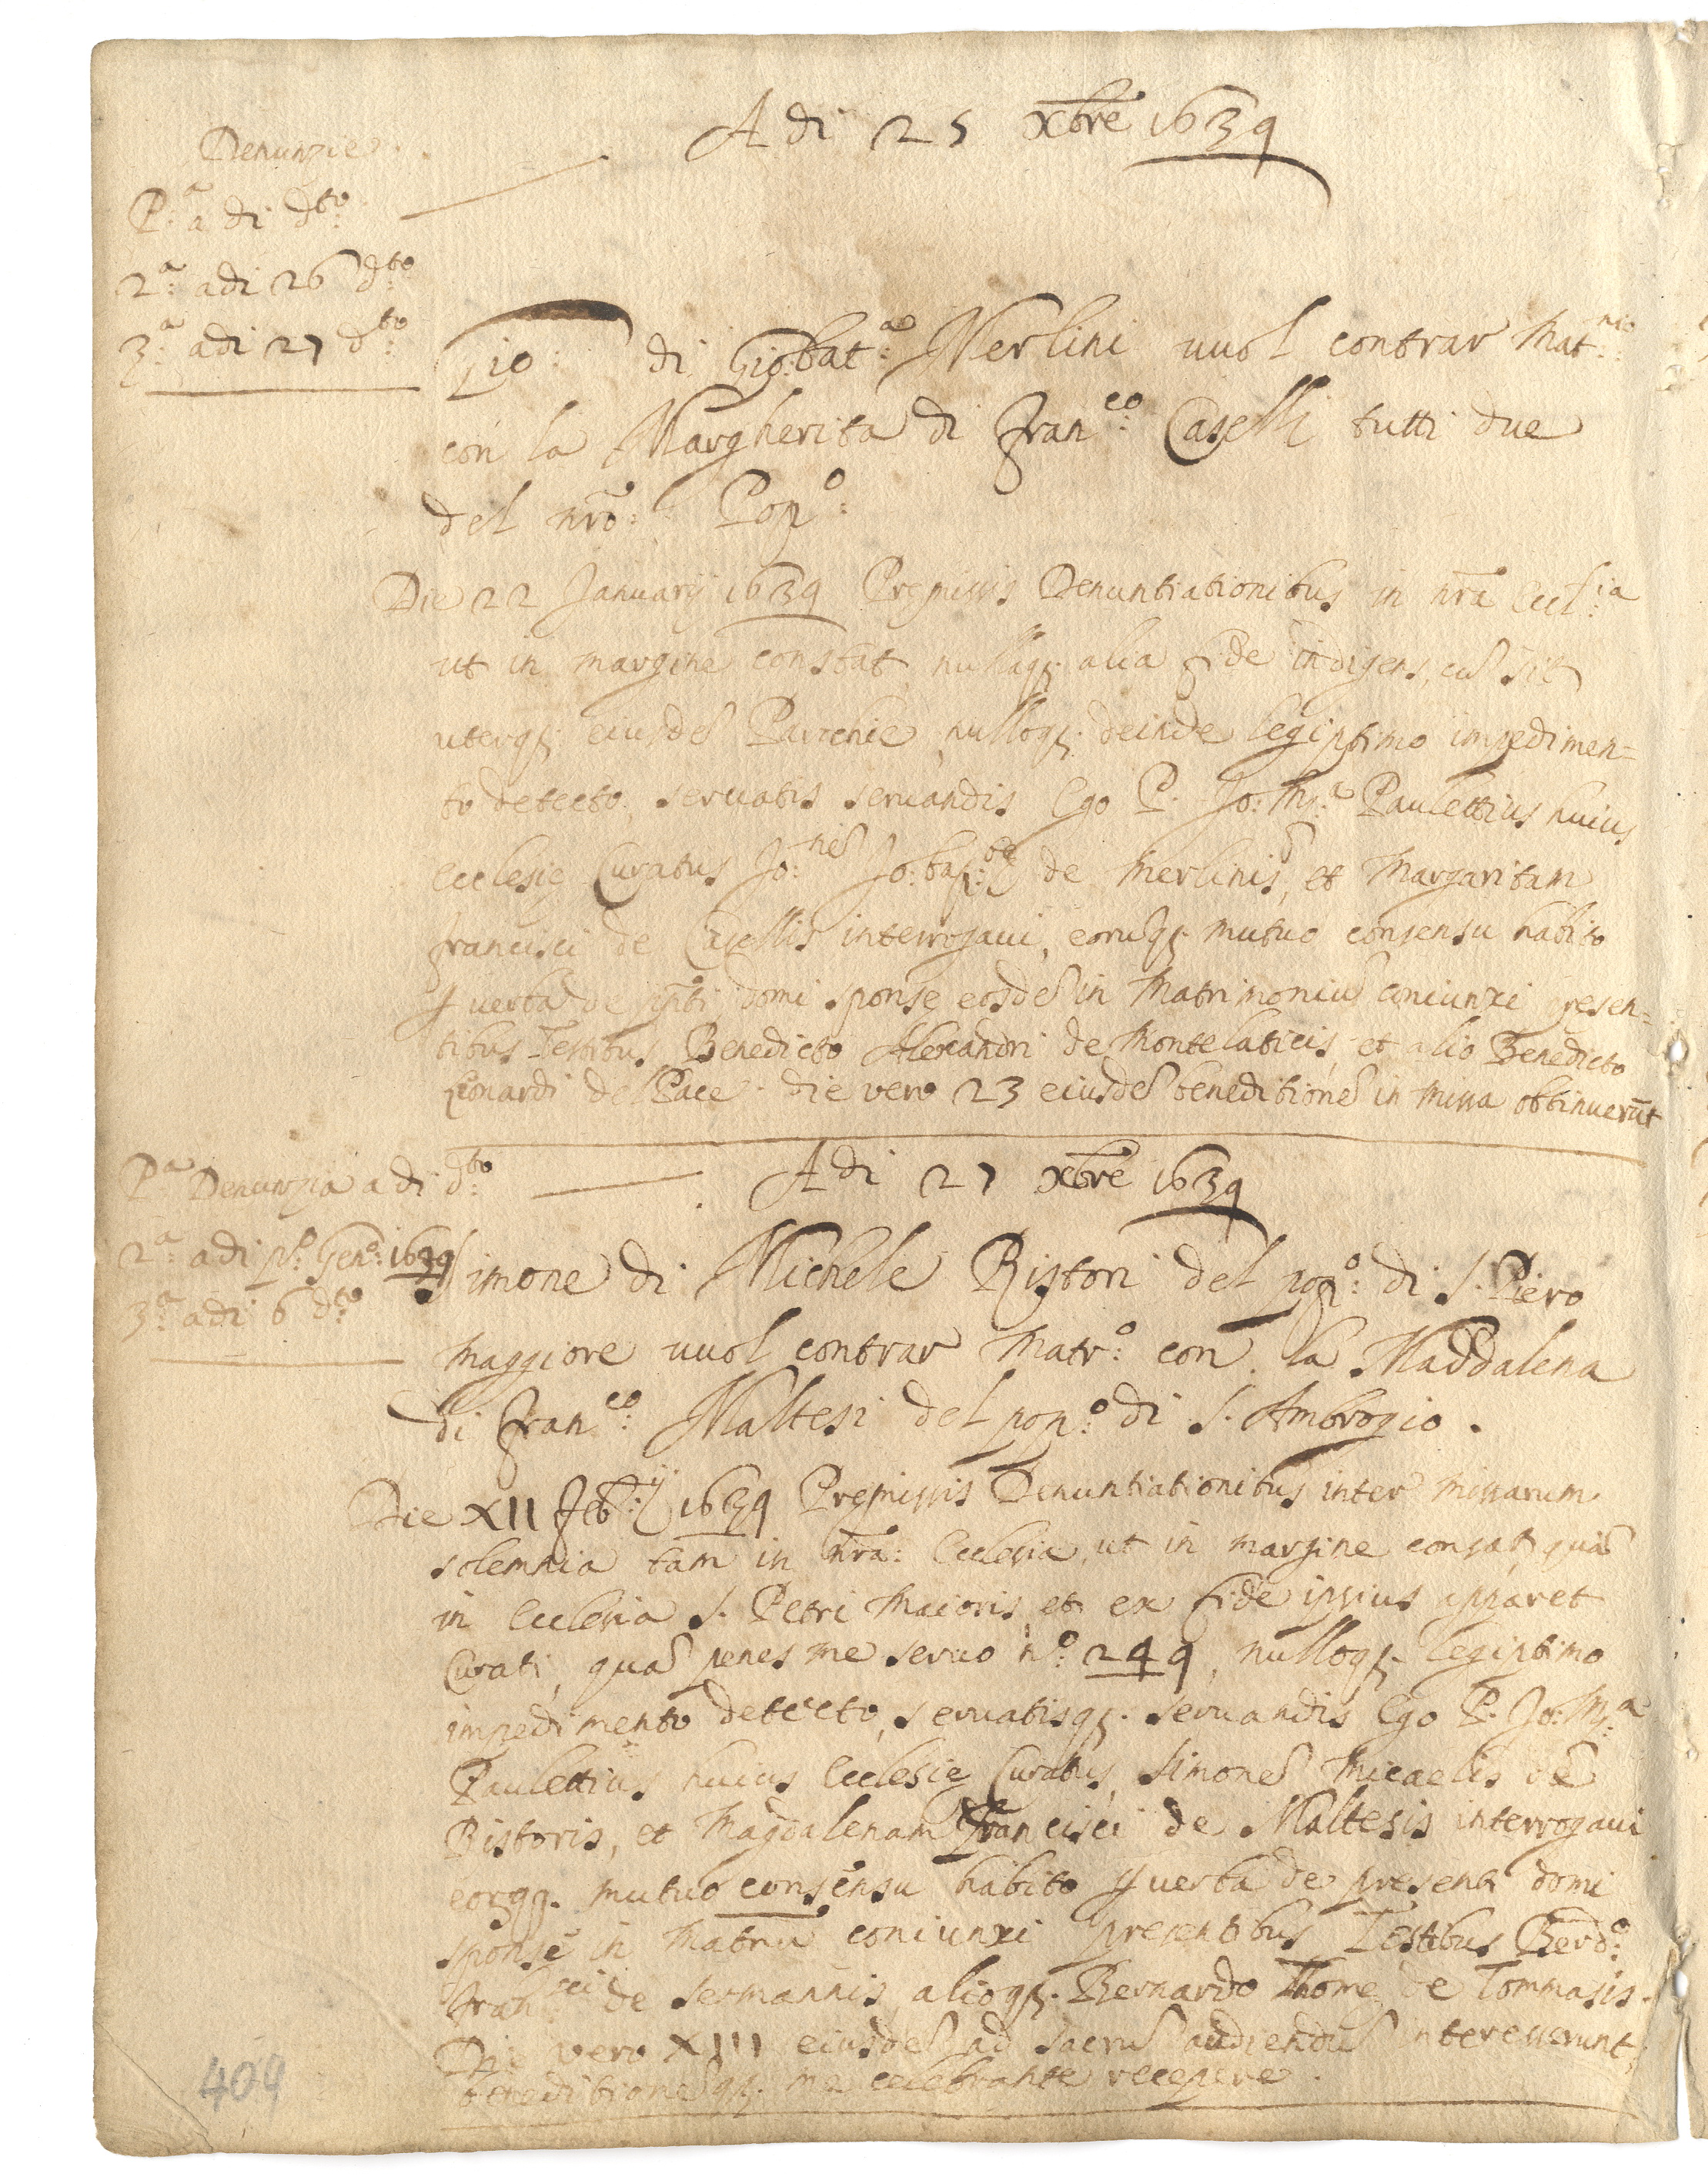 Adi 25 Xbre 1639
Denunzie.
P.ª a di dto
2ª: adi 26 dto
3ª: adi 27 dto
Gio: di Gio:batª: Merlini vuol contrar Mat.nio
con la Margherita di Franco: Caselli tutti due
del nro: Popo:
Die 22 Januarij 1639 Premissis Denuntiationibus in nra Eccl:ia
ut in margine constat, nullaqȝ alia fide indigens, cũ sit
uterqȝ eiusdẽ Parrchie, nulloqȝ. deinde legiptimo impedimen=
to detecto, servatis servandis Ego P. Jo: Mª: Paulettius huius
Ecclesię Curatus Jo:nẽ Jo:bap:tę de Merlinis, et Margaritam
Francisci de Casellis interrogavi, eorũqȝ mutuo consensu habito
ꝑ verba de pñti domi sponsę eosdẽ in Matrimoniũ coniunxi presen=
tibus Testibus Benedicto Alexandri de Montelaticis, et alio Benedicto
Leonardi del Pace. die vero 23 eiusdẽ beneditionẽ in missa obtinuerũt
Adi 27 Xbre 1639
Pª Denunzia a di dto
2ª: adi po: Geno: 1639
3ª adi 6 dto
Simone di Michele Ristori del popo: di S. Piero
Maggiore vuol contrar Matro: con la Maddalena
di Franco: Maltesi del popo: di S. Ambrogio.
Die XII Feb:ij 1639 Premissis Denuntiationibus inter missarum
solemnia tam in nra: Ecclesia, ut in margine consat, quã
in Ecclesia S. Petri Maioris, et ex fide ipsius apparet
Curati, quã penes me servo no: 249, nulloqȝ legiptimo
impedimento detecto, servatisqȝ. servandis Ego P. Jo: Mª:
Paulettius huius Ecclesię Curatus, Simonẽ Micaelis de
Ristoris, et Magdalenam Francisci de Maltesis interrogavi
eorqȝ. mutuo consensu habito ꝑ verba de presenti domi
sponsę in Matriũ coniunxi presentibus Testibus Berdo:
Fran:sci de Sermannis, alioqȝ. Bernardo Thomę de Tommasis.
Die vero XIII eiusdẽ ad sacrũ audiendũ interesserunt,
beneditionẽqȝ. me celebrante recepere.
409